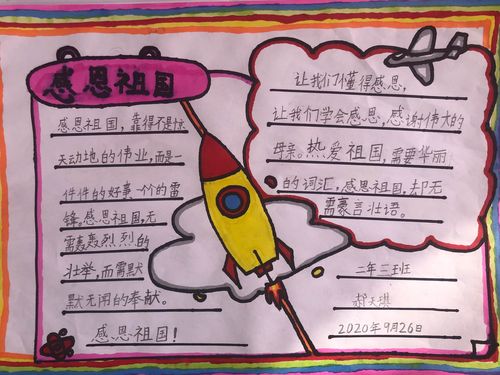 感恩祖国
感恩祖国，靠得不是惊
天动地的伟业，而是一
件件的好事，一个个的雷
锋。感恩祖国，无
需轰轰烈烈的
壮举，而需默
默无闻的奉献。
感恩祖国！
让我们懂得感恩，
让我们学会感恩，感谢伟大的
母亲。热爱祖国，需要华丽
的词汇，感恩祖国，却无
需豪言壮语。
二年三班
郝天琪
2020年9月26日